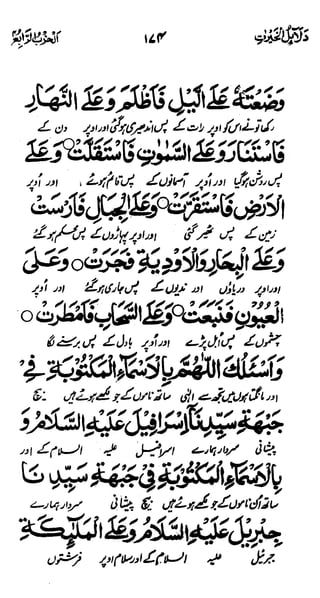 دلائل الخیرات ۱۷۴ الحزب الرابع
وَضَعْتَهٗ عَلَى الَّيْلِ فَاَظْلَمَ وَعَلَى النَّهَارِ
رکھا تونے اس کو اوپر رات کے پس اندھیری ہوگئی اور اوپر دن کے
فَاسْتَنَارَ وَعَلَى السَّمٰوٰتِ فَاسْتَقَلَّتْ ○ وَعَلَى
پس روشن ہوگیا اور اوپر آسمانوں کے پس قائم ہوئے اور اوپر
الْاَرْضِ فَاسْتَقَرَّتْ ○ وَعَلَى الْجِبَالِ فَارْسَتْ
زمین کے پس ٹھیر گئی اور اوپر پہاڑوں کے پس محکم ہوگئے
وَعَلَى الْبِحَارِ وَالْاَوْدِيَةِ فَجَرَتْ ○ وَعَلَى
اور اوپر دریاؤں اور ندیوں کے پس جاری ہوگئے اور اوپر
الْعُيُوْنِ فَنَبَعَتْ ○ وَعَلَى السَّحَابِ فَاَمْطَرَتْ ○
چشموں کے پس اُبل پڑے اور اوپر بادل کے پس برسنے لگا
وَاَسْئَلُكَ اللّٰهُمَّ بِالْاَسْمَآءِ الْمَكْتُوْبَةِ فِيْ
اور مانگتا ہوں میں تجھ سے الٰہی ساتھ ناموں کے جو لکھے ہوئے ہیں بیچ
جَبْهَةِ سَيِّدِنَا اِسْرَافِيْلَ عَلَيْهِ السَّلَامُ وَ
پیشانی سردار ہمارے اسرافیل علیہ السلام کے اور
بِالْاَسْمَآءِ الْمَكْتُوْبَةِ فِيْ جَبْهَةِ سَيِّدِنَا
ساتھ اُن ناموں کے جو لکھے ہوئے ہیں بیچ پیشانی سردار ہمارے
جِبْرِيْلَ عَلَيْهِ السَّلَامُ وَعَلَى الْمَلٰٓئِكَةِ
جبرئیل علیہ السلام کے اور سلام اوپر فرشتوں